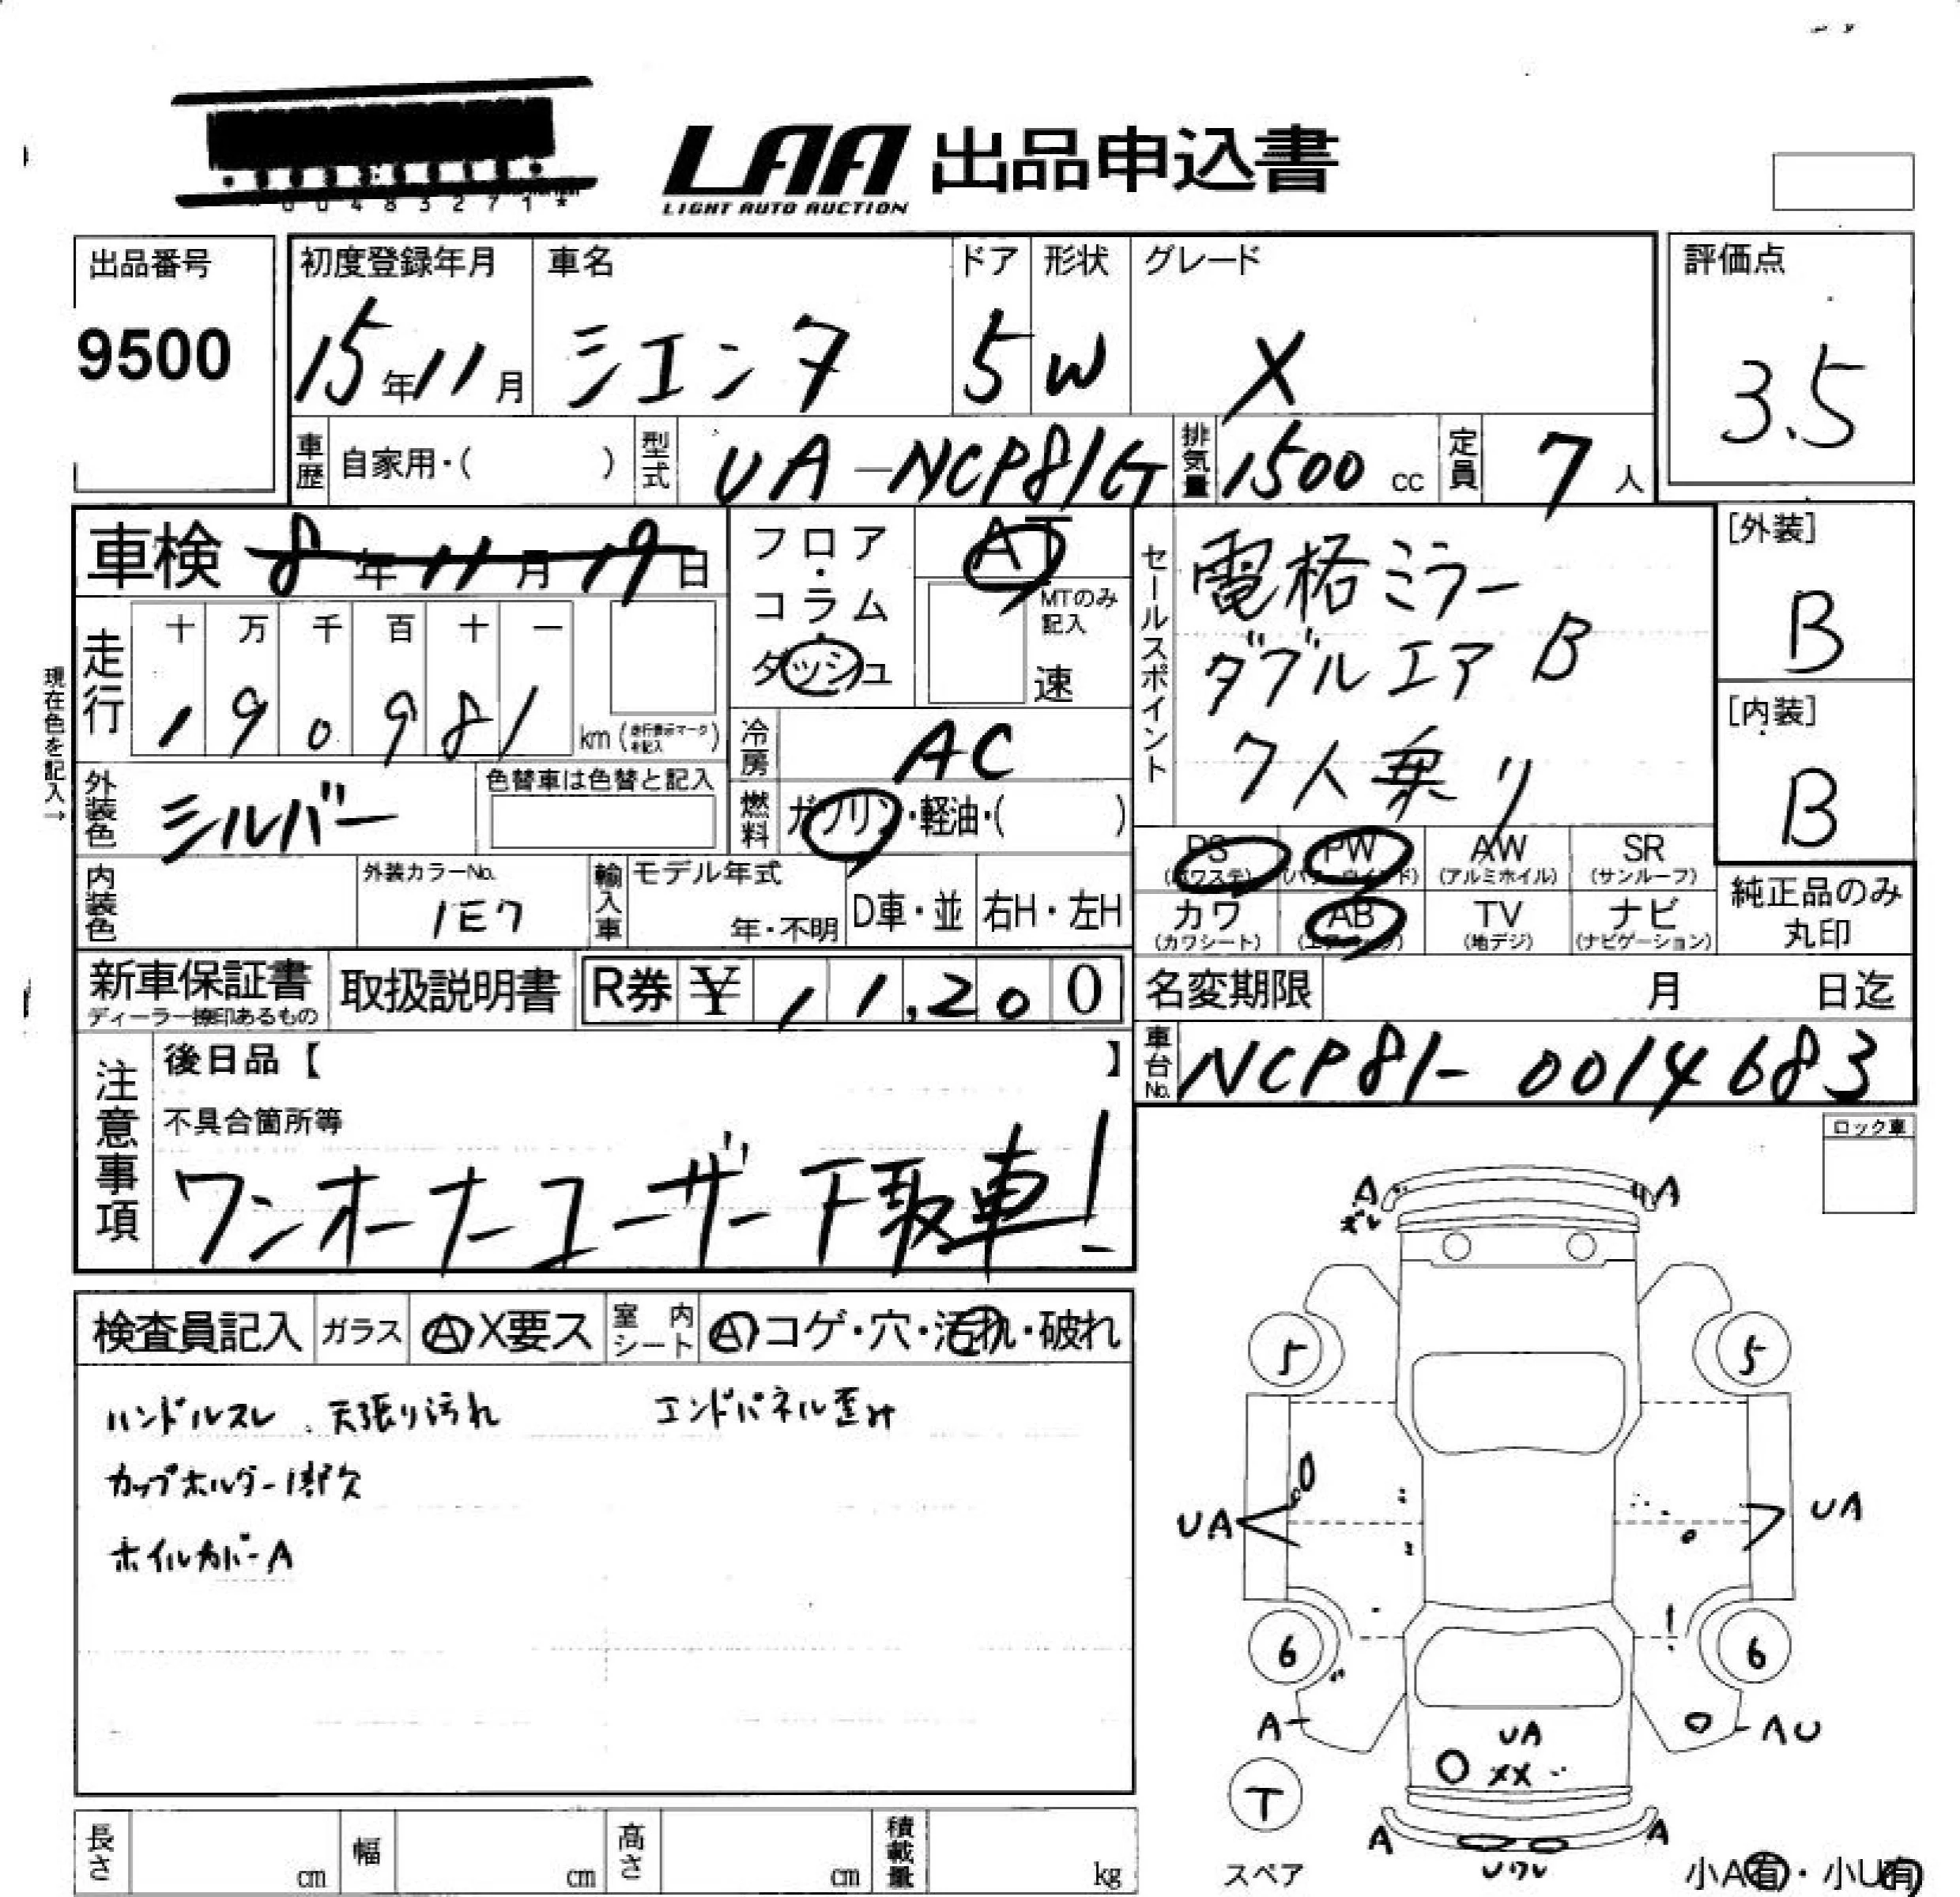 00483271*
LAA 出品申込書
LIGHT AUTO AUCTION
出品番号
9500
初度登録年月
15年11月
車名
シエンタ
ドア
5
形状
W
グレード
X
評価点
3.5
車歴 自家用・( )
型式 UA-NCP81G
排気量 1500 cc
定員 7 人
車検 8年11月19日
走行 十 万 千 百 十 一
1 9 0 9 8 1 km (走行表示マークを記入)
現在色を記入→
外装色 シルバー
色替車は色替と記入
内装色
外装カラーNo.
1E7
フロア・コラム・ダッシュ
AT
MTのみ記入
速
冷房 AC
燃料 ガソリン・軽油・( )
輸入車 モデル年式
年・不明
D車・並 右H・左H
セールスポイント
電格ミラー
ダブルエアB
7人乗り
[外装]
B
[内装]
B
PS (パワステ) PW (パワーウインド) AW (アルミホイル) SR (サンルーフ)
カワ (カワシート) AB (エアバッグ) TV (地デジ) ナビ (ナビゲーション)
純正品のみ丸印
新車保証書
ディーラー捺印あるもの
取扱説明書
R券 ¥ 11,200
名変期限 月 日迄
車台No. NCP81-0014683
注意事項
後日品【 】
不具合箇所等
ワンオーナーユーザー下取車!
ロック車
検査員記入 ガラス A X要ス 室内シート A コゲ・穴・汚れ・破れ
ハンドルスレ、天張り汚れ エンドパネル歪み
カップホルダー1部欠
ホイルカバーA
A A
ズレ
5 5
UA UA
6 6
A AU
UA
XX
T
スペア
A A
小A有・小U有
長さ cm 幅 cm 高さ cm 積載量 kg